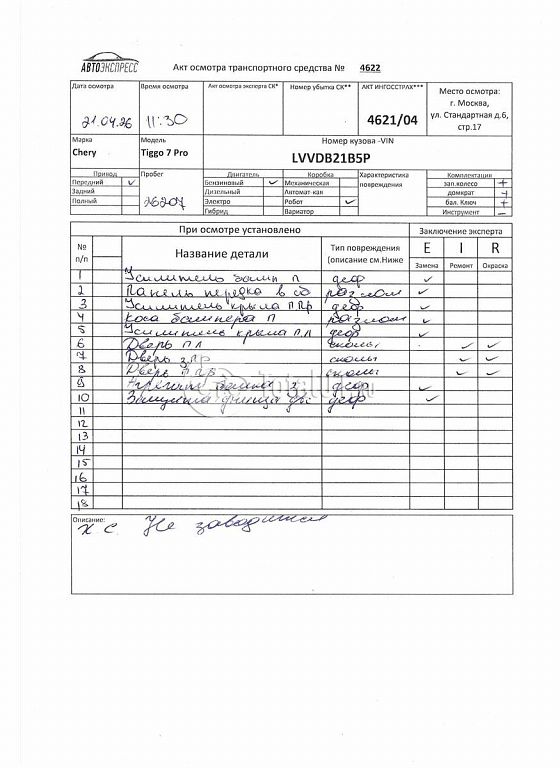 АВТОЭКСПРЕСС
Акт осмотра транспортного средства № 4622
Дата осмотра Время осмотра Акт осмотра эксперта СК* Номер убытка СК** АКТ ИНГОССТРАХ*** Место осмотра:
г. Москва,
21.04.26 11:30 4621/04 ул. Стандартная д.6,
стр.17
Марка Модель Номер кузова -VIN
Chery Tiggo 7 Pro LVVDB21B5P
Привод Пробег Двигатель Коробка Характеристика Комплектация
Передний ✓ Бензиновый ✓ Механическая повреждения зап.колесо +
Задний Дизельный Автомат-кая домкрат +
Полный 26207 Электро Робот ✓ бал. Ключ +
Гибрид Вариатор Инструмент –
При осмотре установлено Заключение эксперта
№ Название детали Тип повреждения E I R
п/п (описание см.Ниже Замена Ремонт Окраска
1 Усилитель бамп П деф ✓
2 Панель передка в сб разлом ✓
3 Усилитель крыла П Пр деф ✓
4 Коса бампера П разлом ✓
5 Усилитель крыла П.Л деф ✓
6 Дверь П Л сколы ✓ ✓
7 Дверь З ПР сколы ✓ ✓
8 Дверь П ПР сколы ✓ ✓
9 деф ✓
10 Защита днища деф ✓
11
12
13
14
15
16
17
18
Описание:
Х С. Не заводится